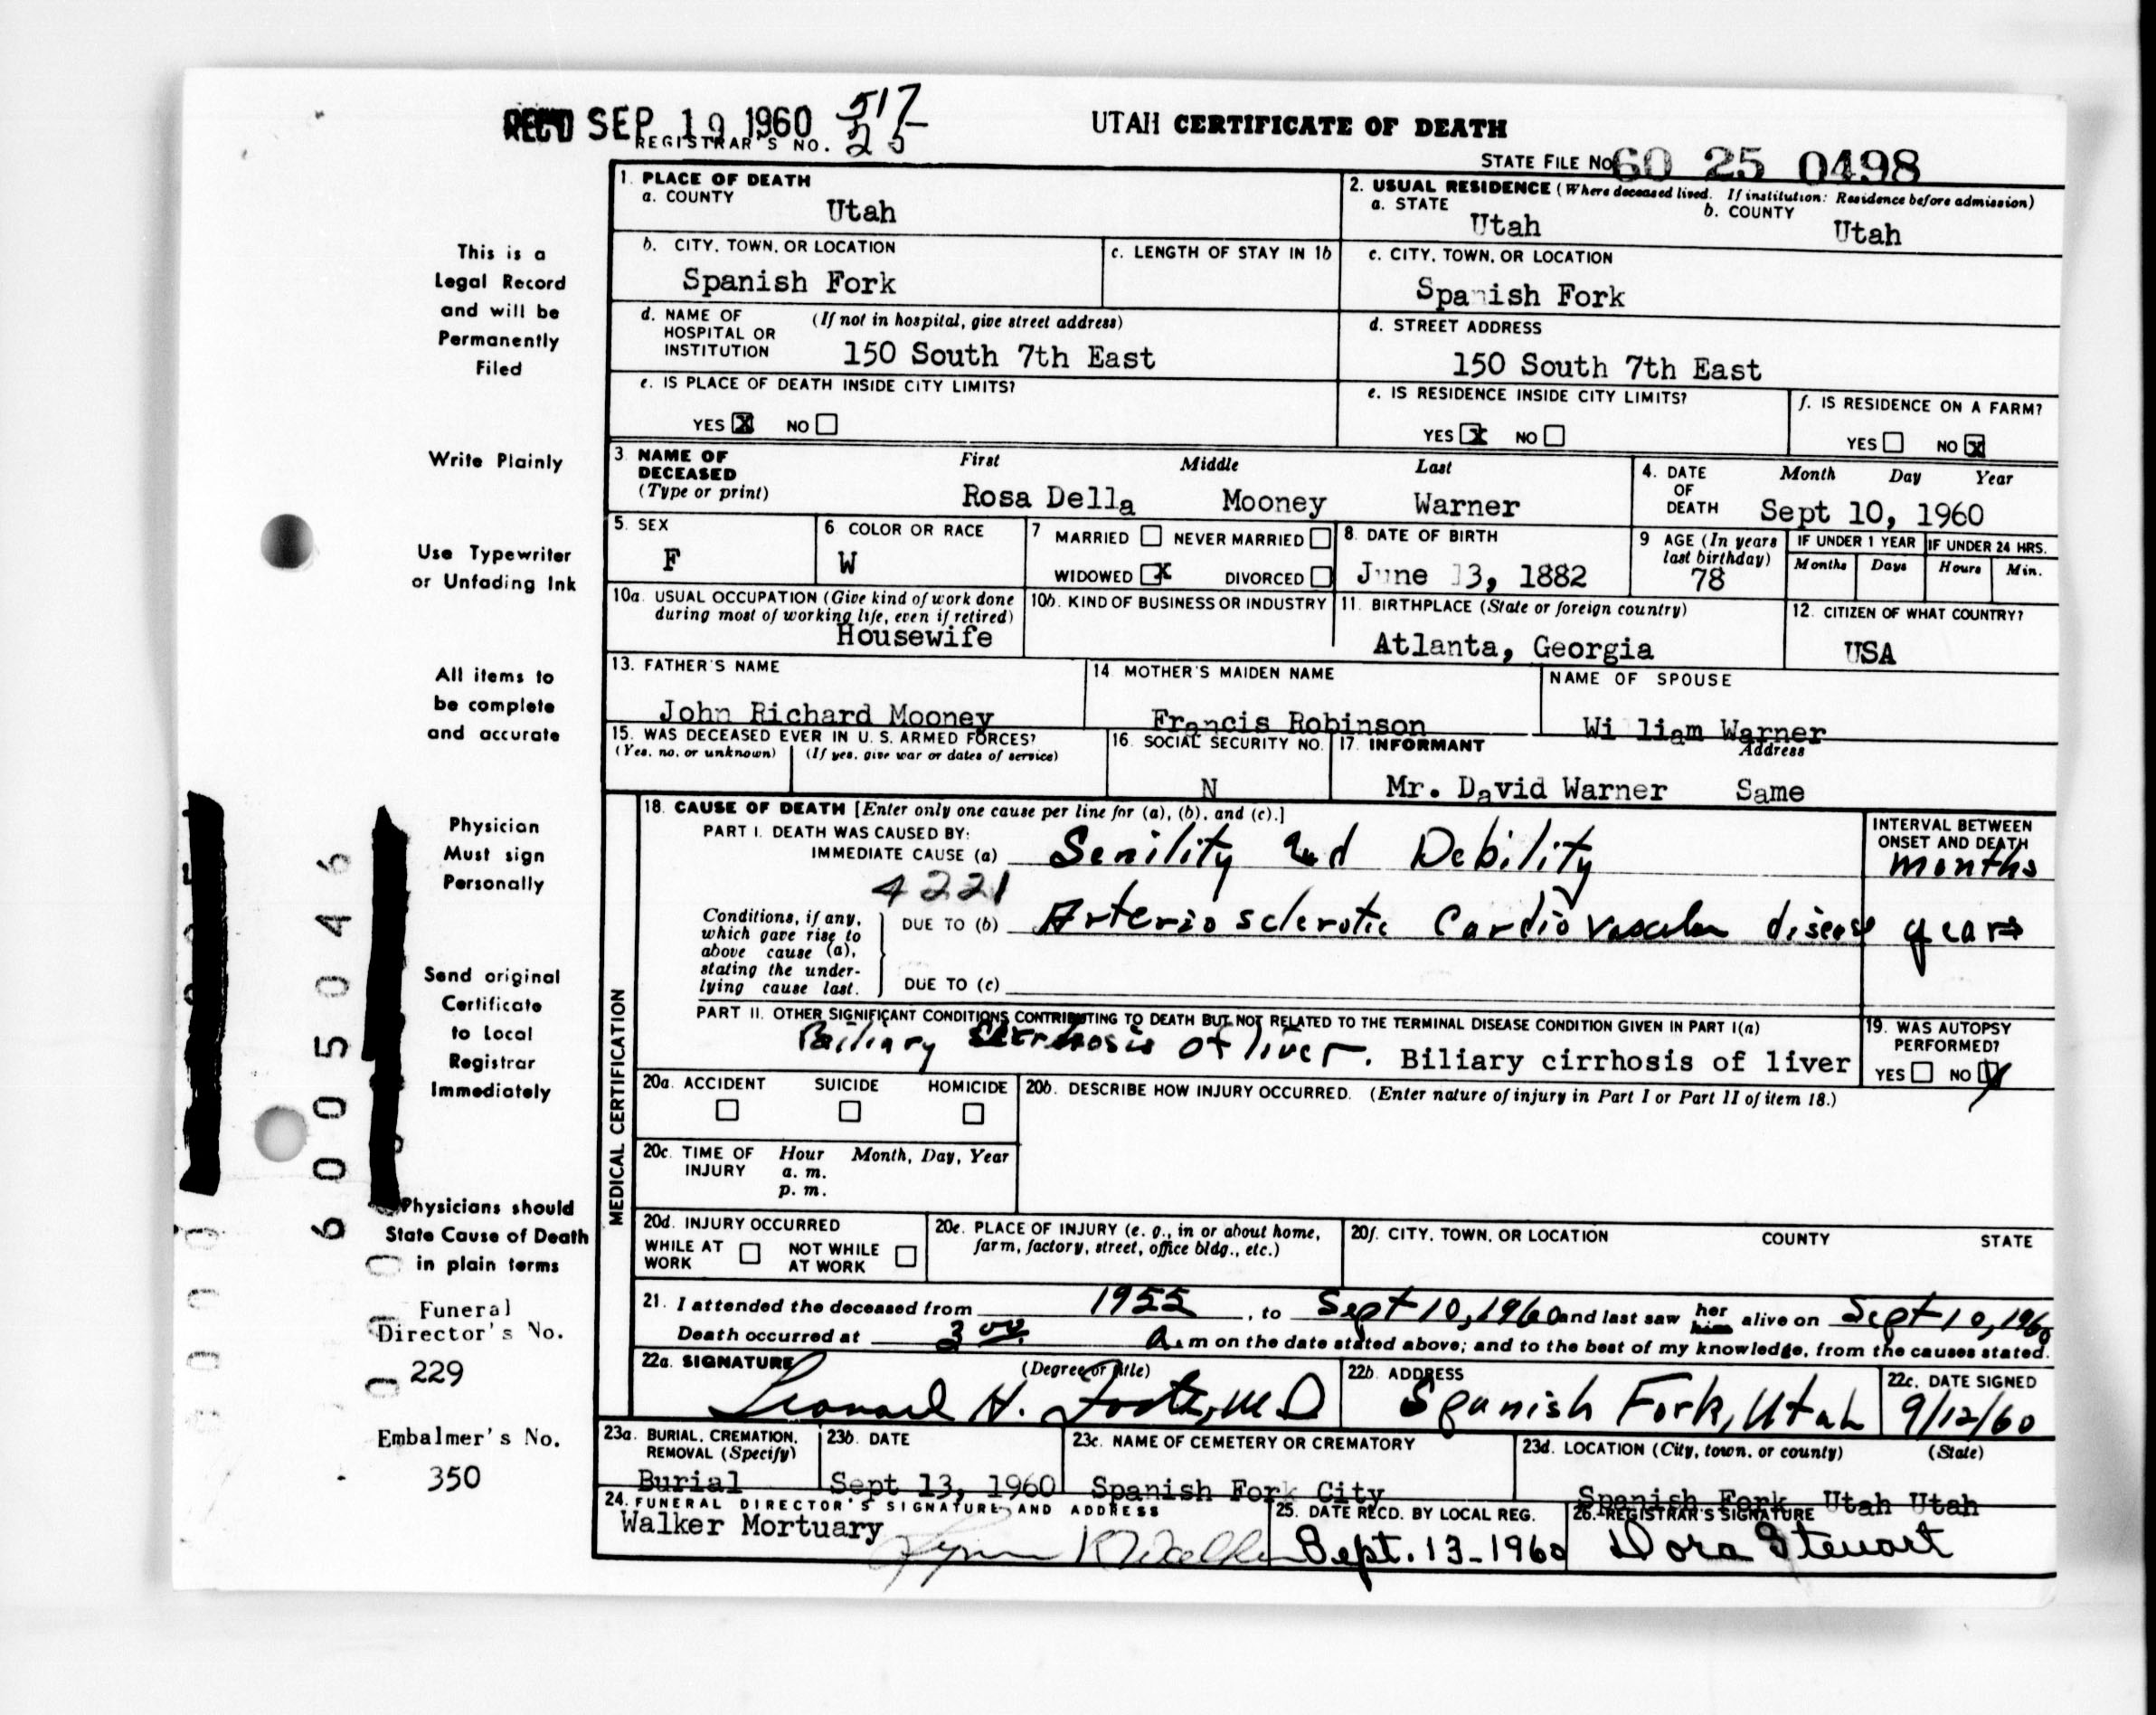 REC'D SEP 19 1960 517
REGISTRAR'S NO. 25
UTAH CERTIFICATE OF DEATH
STATE FILE NO. 60 25 0498
This is a
Legal Record
and will be
Permanently
Filed
Write Plainly
Use Typewriter
or Unfading Ink
All items to
be complete
and accurate
Physician
Must sign
Personally
Send original
Certificate
to Local
Registrar
Immediately
Physicians should
State Cause of Death
in plain terms
Funeral
Director's No.
229
Embalmer's No.
350
6005046
1. PLACE OF DEATH
a. COUNTY
Utah
2. USUAL RESIDENCE (Where deceased lived. If institution: Residence before admission)
a. STATE b. COUNTY
Utah Utah
b. CITY, TOWN, OR LOCATION c. LENGTH OF STAY IN 1b
Spanish Fork
c. CITY, TOWN, OR LOCATION
Spanish Fork
d. NAME OF HOSPITAL OR INSTITUTION (If not in hospital, give street address)
150 South 7th East
d. STREET ADDRESS
150 South 7th East
e. IS PLACE OF DEATH INSIDE CITY LIMITS?
YES X NO
e. IS RESIDENCE INSIDE CITY LIMITS?
YES X NO
f. IS RESIDENCE ON A FARM?
YES NO X
3. NAME OF DECEASED (Type or print) First Middle Last
Rosa Della Mooney Warner
4. DATE OF DEATH Month Day Year
Sept 10, 1960
5. SEX
F
6 COLOR OR RACE
W
7 MARRIED NEVER MARRIED
WIDOWED X DIVORCED
8. DATE OF BIRTH
June 13, 1882
9 AGE (In years last birthday)
78
IF UNDER 1 YEAR IF UNDER 24 HRS.
Months Days Hours Min.
10a. USUAL OCCUPATION (Give kind of work done
during most of working life, even if retired)
Housewife
10b. KIND OF BUSINESS OR INDUSTRY
11. BIRTHPLACE (State or foreign country)
Atlanta, Georgia
12. CITIZEN OF WHAT COUNTRY?
USA
13. FATHER'S NAME
John Richard Mooney
14 MOTHER'S MAIDEN NAME
Francis Robinson
NAME OF SPOUSE
Wi liam Warner
15. WAS DECEASED EVER IN U. S. ARMED FORCES?
(Yes, no, or unknown) (If yes, give war or dates of service)
16. SOCIAL SECURITY NO.
N
17. INFORMANT Address
Mr. David Warner Same
MEDICAL CERTIFICATION
18. CAUSE OF DEATH [Enter only one cause per line for (a), (b), and (c).]
PART I. DEATH WAS CAUSED BY:
IMMEDIATE CAUSE (a) Senility and Debility
INTERVAL BETWEEN
ONSET AND DEATH
months
4221
Conditions, if any,
which gave rise to
above cause (a),
stating the under-
lying cause last.
DUE TO (b) Arteriosclerotic Cardiovascular disease years
DUE TO (c)
PART II. OTHER SIGNIFICANT CONDITIONS CONTRIBUTING TO DEATH BUT NOT RELATED TO THE TERMINAL DISEASE CONDITION GIVEN IN PART I(a)
Biliary cirrhosis of liver. Biliary cirrhosis of liver
19. WAS AUTOPSY
PERFORMED?
YES NO X
20a. ACCIDENT SUICIDE HOMICIDE
20b. DESCRIBE HOW INJURY OCCURRED. (Enter nature of injury in Part I or Part II of item 18.)
20c. TIME OF INJURY Hour Month, Day, Year
a. m.
p. m.
20d. INJURY OCCURRED
WHILE AT WORK NOT WHILE AT WORK
20e. PLACE OF INJURY (e. g., in or about home,
farm, factory, street, office bldg., etc.)
20f. CITY, TOWN, OR LOCATION COUNTY STATE
21. I attended the deceased from 1955, to Sept 10, 1960 and last saw her him alive on Sept 10, 1960
Death occurred at 3 00 a. m on the date stated above; and to the best of my knowledge, from the causes stated.
22a. SIGNATURE (Degree or title)
Leonard H. Foote, M D
22b. ADDRESS
Spanish Fork, Utah
22c. DATE SIGNED
9/12/60
23a. BURIAL, CREMATION,
REMOVAL (Specify)
Burial
23b. DATE
Sept 13, 1960
23c. NAME OF CEMETERY OR CREMATORY
Spanish Fork City
23d. LOCATION (City, town, or county) (State)
Spanish Fork Utah Utah
24. FUNERAL DIRECTOR'S SIGNATURE AND ADDRESS
Walker Mortuary
25. DATE RECD. BY LOCAL REG.
Sept. 13-1960
26. REGISTRAR'S SIGNATURE
Dora Stewart